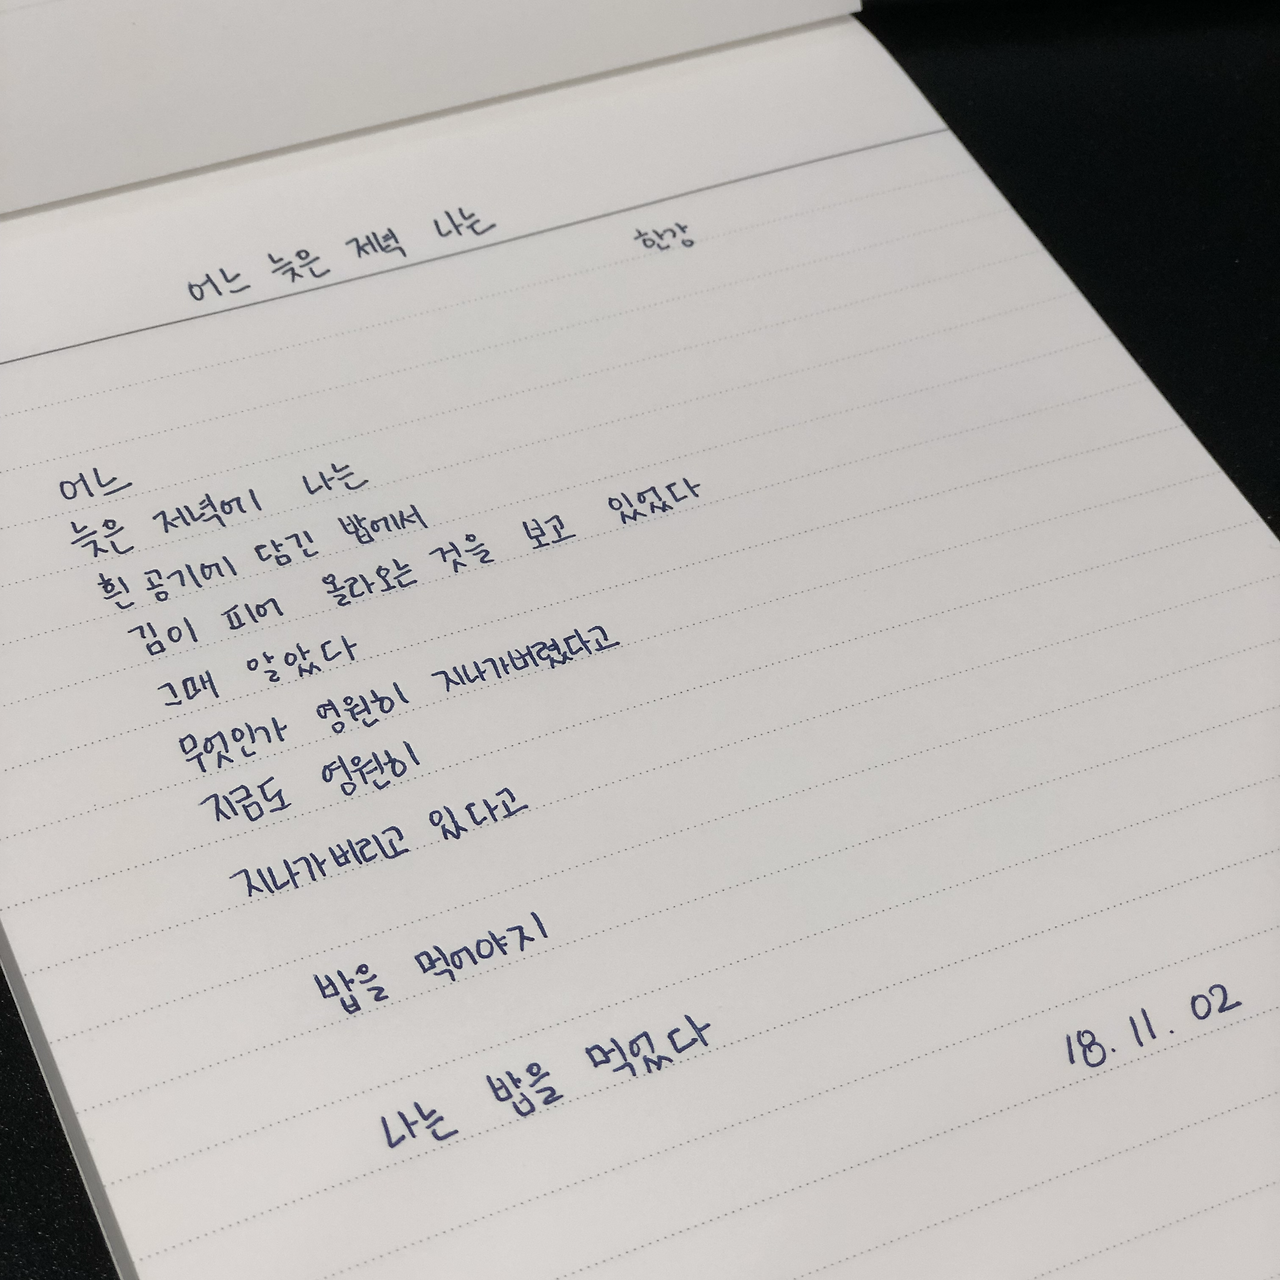 어느 늦은 저녁 나는
한강
어느
늦은 저녁에 나는
흰 공기에 담긴 밥에서
김이 피어 올라오는 것을 보고 있었다
그때 알았다
무엇인가 영원히 지나가버렸다고
지금도 영원히
지나가버리고 있다고
밥을 먹어야지
나는 밥을 먹었다
18. 11. 02